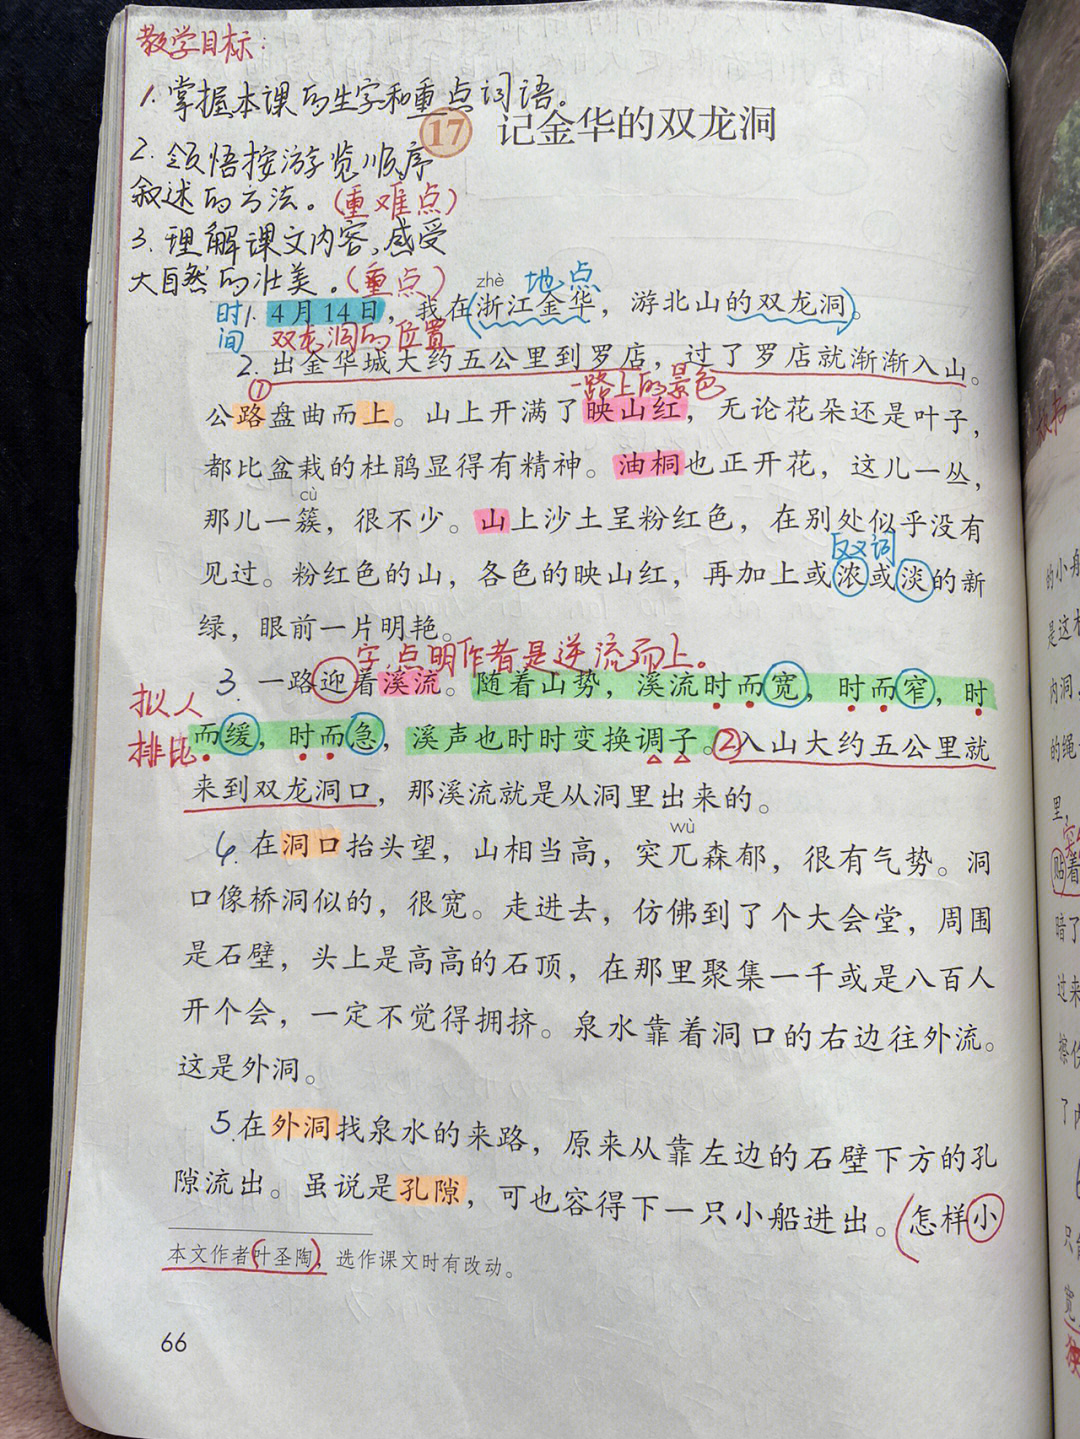 教学目标：
1. 掌握本课的生字和重点词语。
17 记金华的双龙洞
2. 领悟按游览顺序
叙述的方法。（重难点）
3. 理解课文内容，感受
大自然的壮美。（重点）
zhè 地点
时间 1. 4月14日，我在（浙江金华，游北山的双龙洞）。
双龙洞的位置
2. 出金华城大约五公里到罗店，过了罗店就渐渐入山。
① 一路上的景色
公路盘曲而上。山上开满了映山红，无论花朵还是叶子，
都比盆栽的杜鹃显得有精神。油桐也正开花，这儿一丛，
cù
那儿一簇，很不少。山上沙土呈粉红色，在别处似乎没有
反义词
见过。粉红色的山，各色的映山红，再加上或浓或淡的新
绿，眼前一片明艳。
字，点明作者是逆流而上。
3. 一路迎着溪流。随着山势，溪流时而宽，时而窄，时
拟人
排比
而缓，时而急，溪声也时时变换调子。②入山大约五公里就
来到双龙洞口，那溪流就是从洞里出来的。
wù
4. 在洞口抬头望，山相当高，突兀森郁，很有气势。洞
口像桥洞似的，很宽。走进去，仿佛到了个大会堂，周围
是石壁，头上是高高的石顶，在那里聚集一千或是八百人
开个会，一定不觉得拥挤。泉水靠着洞口的右边往外流。
这是外洞。
5. 在外洞找泉水的来路，原来从靠左边的石壁下方的孔
隙流出。虽说是孔隙，可也容得下一只小船进出。（怎样小
本文作者（叶圣陶），选作课文时有改动。
66
的小船
是这木
内洞，
的绳
里，
贴着
暗了
过来
擦伤
了内
只能
宽